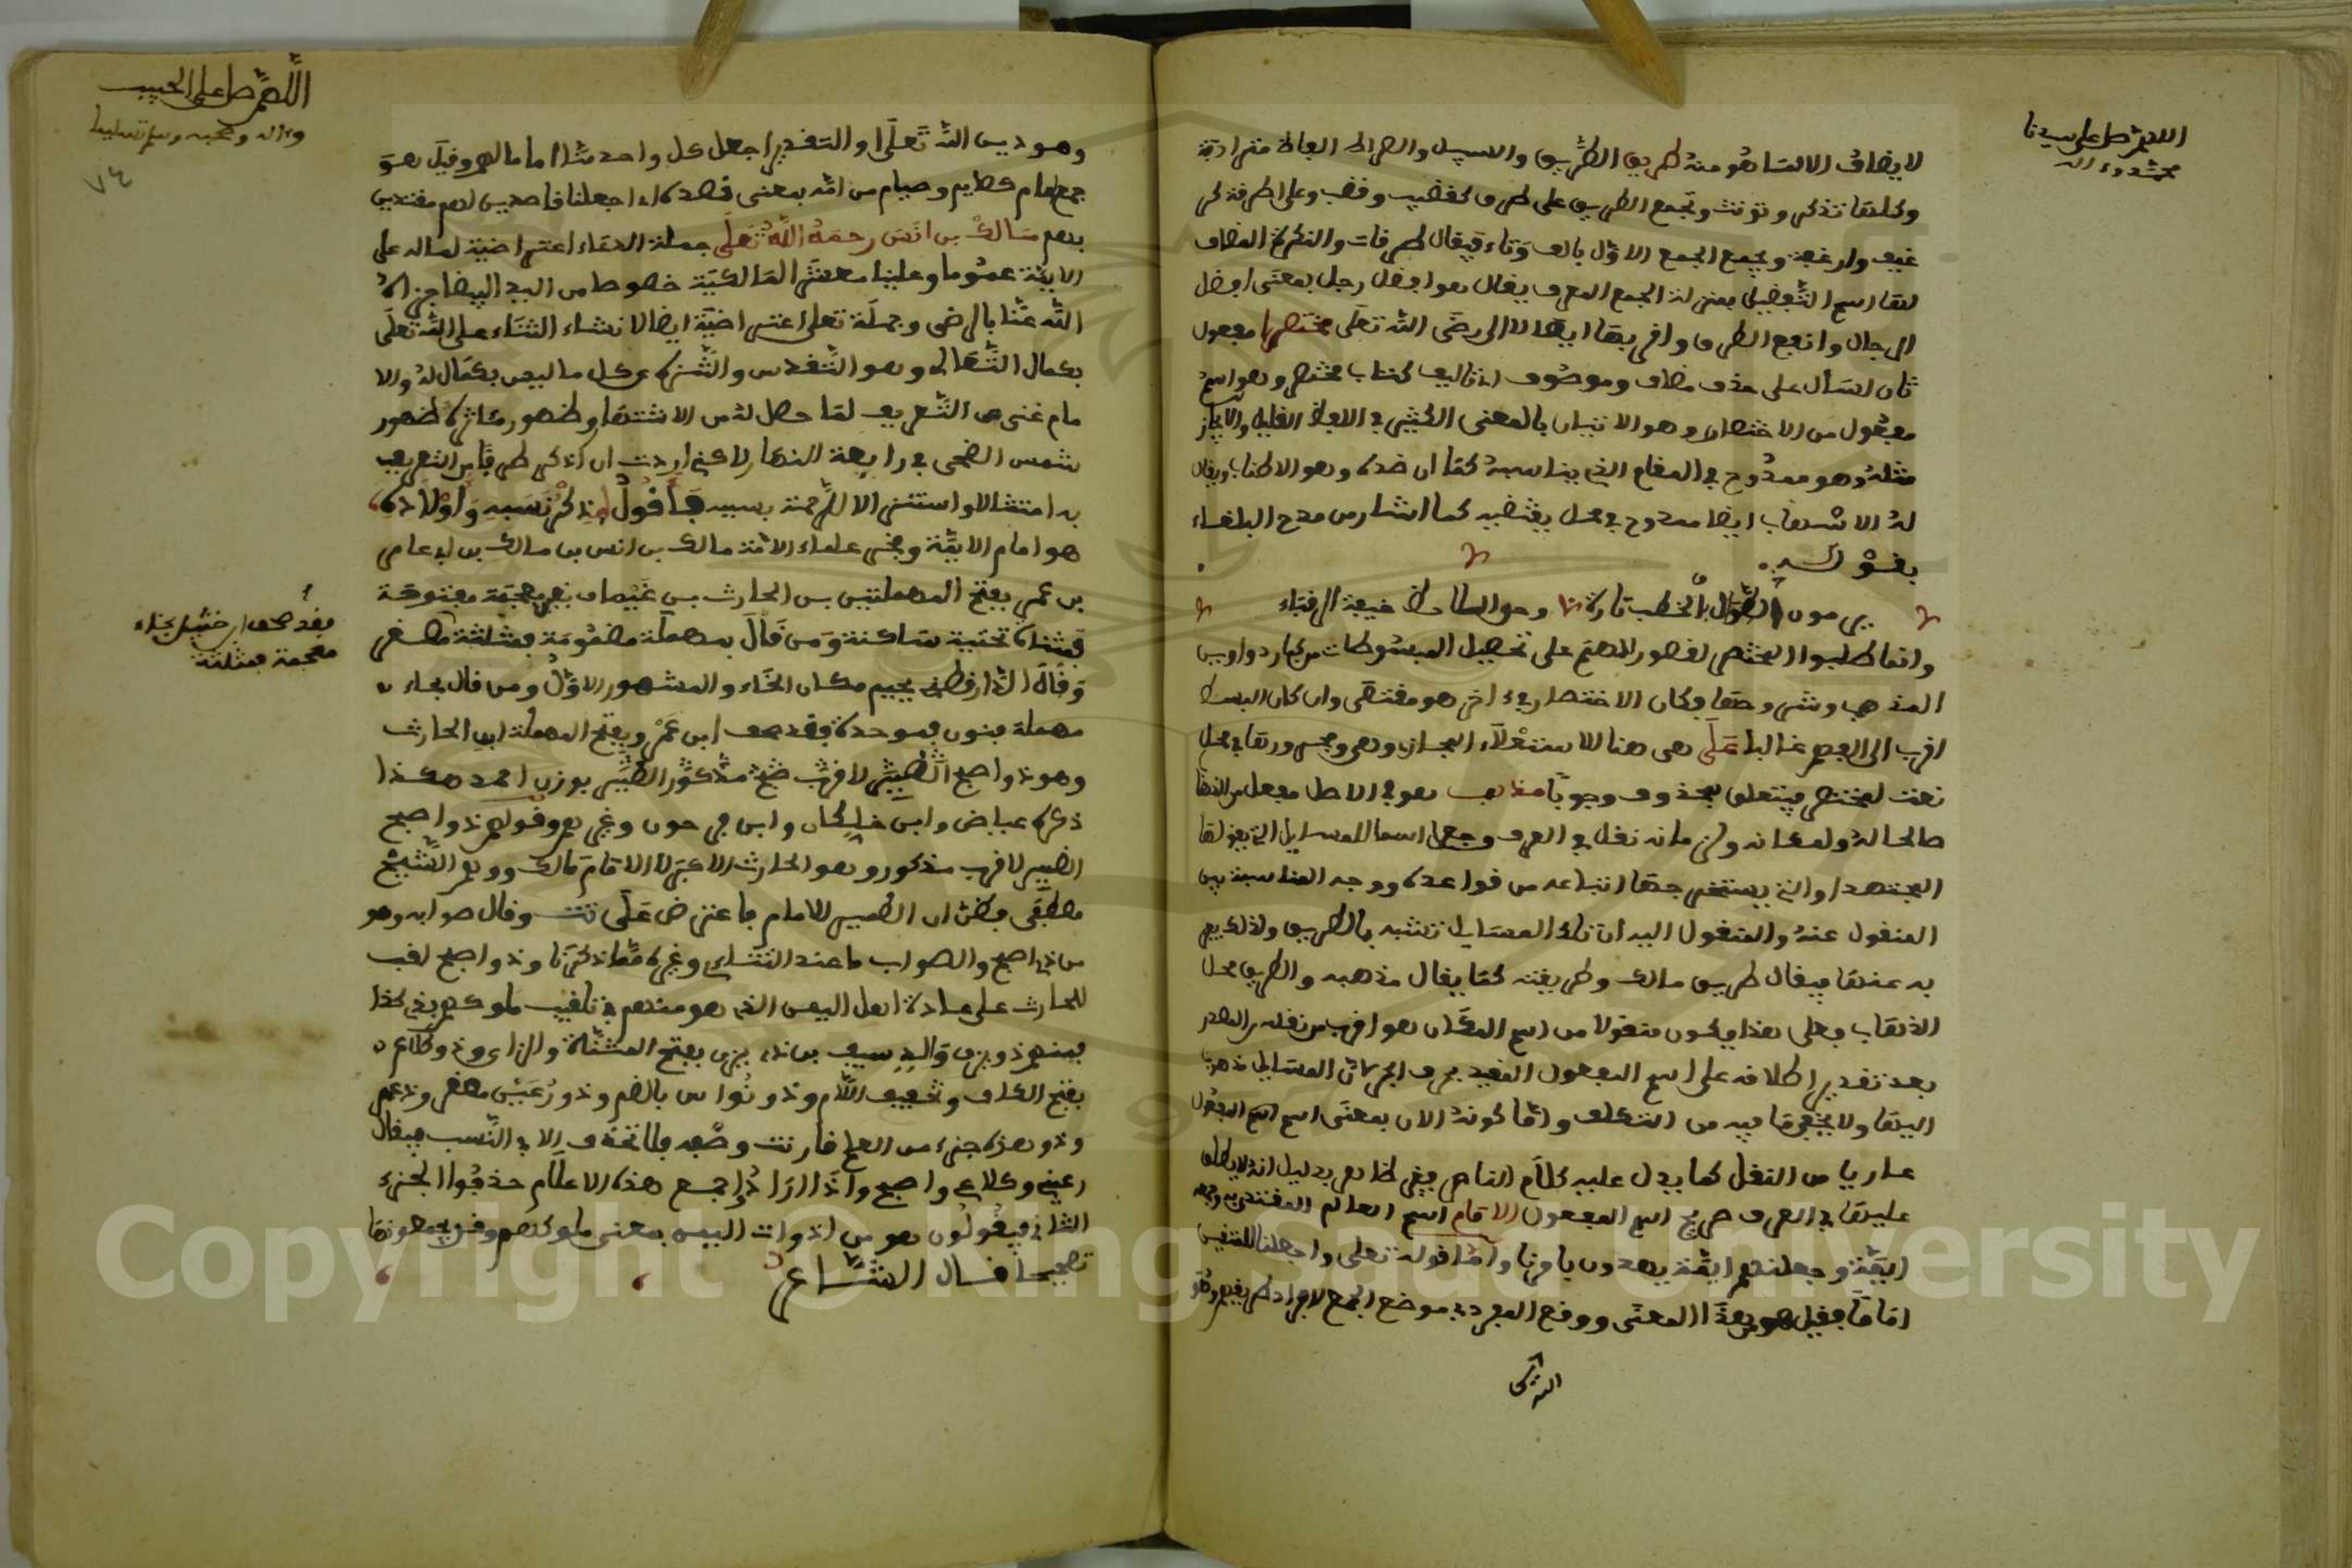 اللهم صل على سيدنا
محمد وءاله
لا يضاف الا لما هو منه طريق الطريق والسبيل والصراط ألفاظ مترادفة
وكلها تذكر وتؤنث وتجمع الطريق على طرق كقضيب وقضب وعلى اطرفة كر
غيف وارغفة ويجمع الجمع الاول بالف وتاء فيقال طرقات والنكرة المضاف
لها اسم التفضيل بمنزلة الجمع المعرف يقال هو افضل رجل بمعنى افضل
الرجال وانفع الطرق واقربها ايصالا الى رضى الله تعلى مختصرا مفعول
ثان لسأل على حذف مضاف وموصوف اي تاليف كتاب مختصر وهو اسم
مفعول من الاختصار وهو الاتيان بالمعنى الكثير في الالفاظ القليلة والايجاز
مثله وهو ممدوح في المقام الذي يناسبه كما ان ضده وهو الاطناب ويقال
له الاسهاب ايضا ممدوح في محل يقتضيه كما اشار من مدح البلغاء
بقوله
يرمون بالخطب الطوال وتارة وحي الملاحظ خيفة الرقباء
وانما طلبوا المختصر لقصور الهمم على تحصيل المبسوطات من كبار دواوين
المذهب وشروحها فكان الاختصار في ءاخر هو مقتضى وان كان البسط
اقرب الى الفهم غالبا على هي هنا للاستعلاء المجازي وهي ومجرورها في محل
نعت لمختصر فيتعلق بمحذوف وجوبا مذهب هو في الاصل مفعل من الذهاب
صالحا له ولمكانه وزمانه نقل في العرف وجعل اسما للمسايل التي يقولها
المجتهد او التي يستخرجها اتباعه من قواعده ووجه المناسبة بين
المنقول عنه والمنقول اليه ان تلك المسايل تشبه بالطريق ولذلك يعبر
به عنها فيقال طريق مالك وطريقته كما يقال مذهبه والطريق محل
الذهاب وعلى هذا فيكون منقولا من اسم المكان هو اقرب من نقله من المصدر
بعد تقدير اطلاقه على اسم المفعول المقيد بحرف الجر لان المسايل مذهوب
اليها ولا يخفى ما فيه من التكلف واما كونه الان بمعنى اسم المفعول
عاريا من النقل كما يدل عليه كلام الناصر فغير ظاهر بدليل انه لا يطلق
عليها في العرف صريح اسم المفعول الامام اسم العالم المقتدى به وجمعه
ايمة وجعلناهم ايمة يهدون بامرنا واما قوله تعلى واجعلنا للمتقين
اماما فقيل هو بهذا المعنى ووقع المفرد في موضع الجمع
اللهم صل على الحبيب
وءاله وصحبه وسلم تسليما
٧٤
وهو دين الله تعلى او التقدير اجعل كل واحد منا اماما لهم وقيل هو
جمع ءام كقايم وصيام من امه بمعنى قصده اي اجعلنا قاصدين لهم مقتدين
بهم مالك بن انس رحمه الله تعلى جملة الدعاء اعتراضية لما له على
الامة عموما وعلينا معشر المالكية خصوصا من اليد البيضا جزاه
الله عنا بالرضى وجملة تعلى اعتراضية ايضا لانشاء الثناء على الله تعلى
بكمال التعالي وهو التقدس والتنزه عن كل ما ليس بكمال له والا
مام غني عن التعريف لما حصل له من الاشتهار وظهور مئاثره ظهور
شمس الضحى في رابعة النهار لاكني اردت ان اذكر طرفا من التعريف
به امتثالا واستنزالا للرحمة بسببه فاقول ذكر نسبه واولاده
هو امام الايمة وخير علماء الامة مالك بن انس بن مالك بن ابي عامر
بن عمر بفتح المهملتين بن الحارث بن غيمان بغين معجمة مفتوحة
فمثناة تحتية ساكنة ومن قال بمهملة مضمومة فمثلثة فقد صحف
وقال الدارقطني بجيم مكان الخاء والمشهور الاول ومن قال بحاء
مهملة فنون فموحدة فقد صحف ابن عمر وبفتح المهملة ابن الحارث
وهو ذو اصبح
ذكره عياض وابن خلكان وابن فرحون وغيرهم وقولهم ذو اصبح
الضمير لاقرب مذكور وهو الحارث الاعلى لا الامام مالك ووهم الشيخ
مصطفى فظن ان الضمير للامام فاعترض على تت وقال صوابه وهو
من ذي اصبح والصواب ما عند التتاءي وغيره مما ذكرنا وذو اصبح لقب
للحارث على عادة اهل اليمن الذي هو منهم في تلقيب ملوكهم بذي كذا
فمنهم ذو يزن والد سيف بن ذي يزن بفتح المثناة والزاي وذو كلاع
بفتح الكاف وتخفيف اللام وذو نواس بالضم وذو رعين مصغر
وذو هذه جزء من العلم قارنت وضعه فلا تحذف الا في النسب فيقال
رعيني وكلاعي واصبحي واذا ارادوا جمع هذه الاعلام حذفوا الجزء
الثاني فيقولون هو من اذواء اليمن بمعنى ملوكهم وقد يجمعونها
تصحيحا قال الشاعر